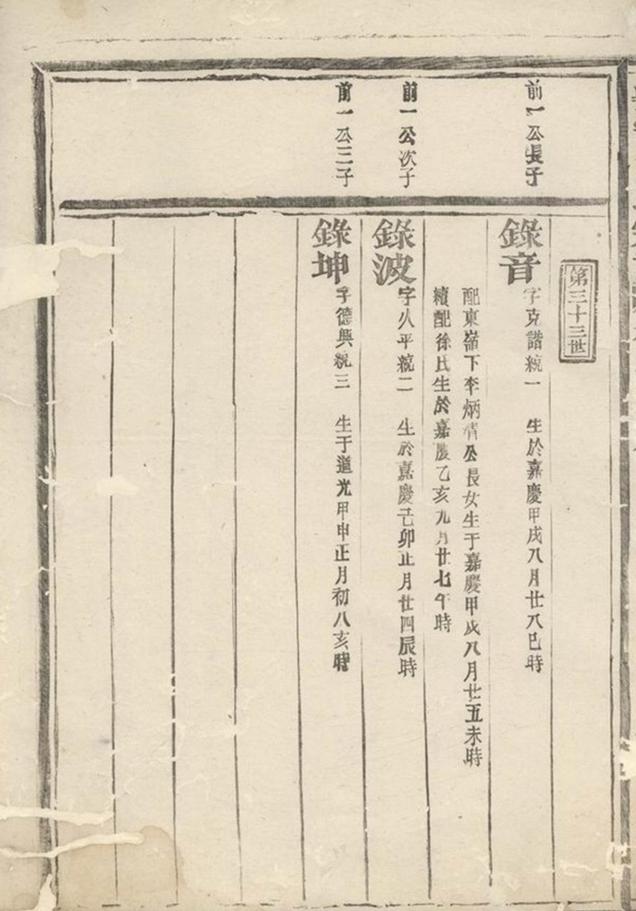 第三十三世
前一公長子
錄音
字克諧統一 生於嘉慶甲戌八月廿八巳時
配東嶺下李炳清公長女生于嘉慶甲戌八月廿五未時
續配徐氏生於嘉慶乙亥九月廿七午時
前一公次子
錄波
字人平統二 生於嘉慶己卯正月廿四辰時
前一公三子
錄坤
字德興統三 生于道光甲申正月初八亥時